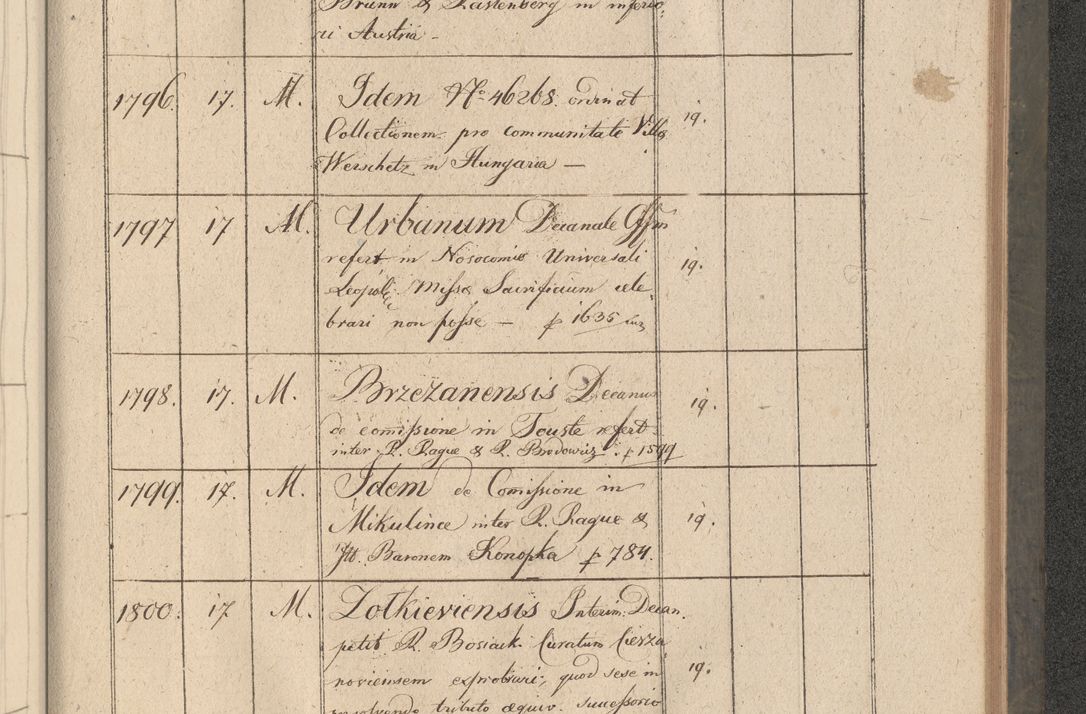 Brünn & Rastenberg in inferio
ri Austria -
1796. 17. M. Idem No. 46268. ordinat
Collectionem pro communitate Villa
Werschetz in Hungaria —
19.
1797 17 M. Urbanum Decanale Offm
refert in Nosocomio Universali
Leopol: Missa Sacrificium cele
brari non posse — p 1635
19.
1798. 17. M. Brzeżanensis Decanus
de comissione in Touste refert
inter R. Rague & R. Brodowicz. p 1599
19.
1799. 17. M. Idem de Comissione in
Mikulince inter R. Rague &
Ill. Baronem Konopka p 784.
19.
1800. 17 M. Zotkieviensis Interim: Decan.
petit R. Bosiack Curatum Cierza
noviensem exprobrari, quod sese in
solvendo tributo æquiv. successorio
19.